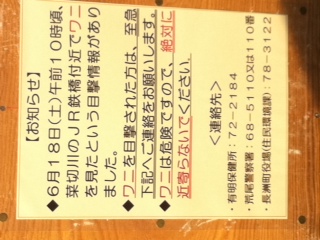 【お知らせ】
◆6月18日(土)午前10時頃、
菜切川のJR鉄橋付近でワニ
を見たという目撃情報があり
ました。
◆ワニを目撃された方は、至急
下記へご連絡をお願いします。
◆ワニは危険ですので、絶対に
近寄らないでください。
<連絡先>
・有明保健所:72-2184
・荒尾警察署:68-5110又は110番
・長洲町役場(住民環境課):78-3122